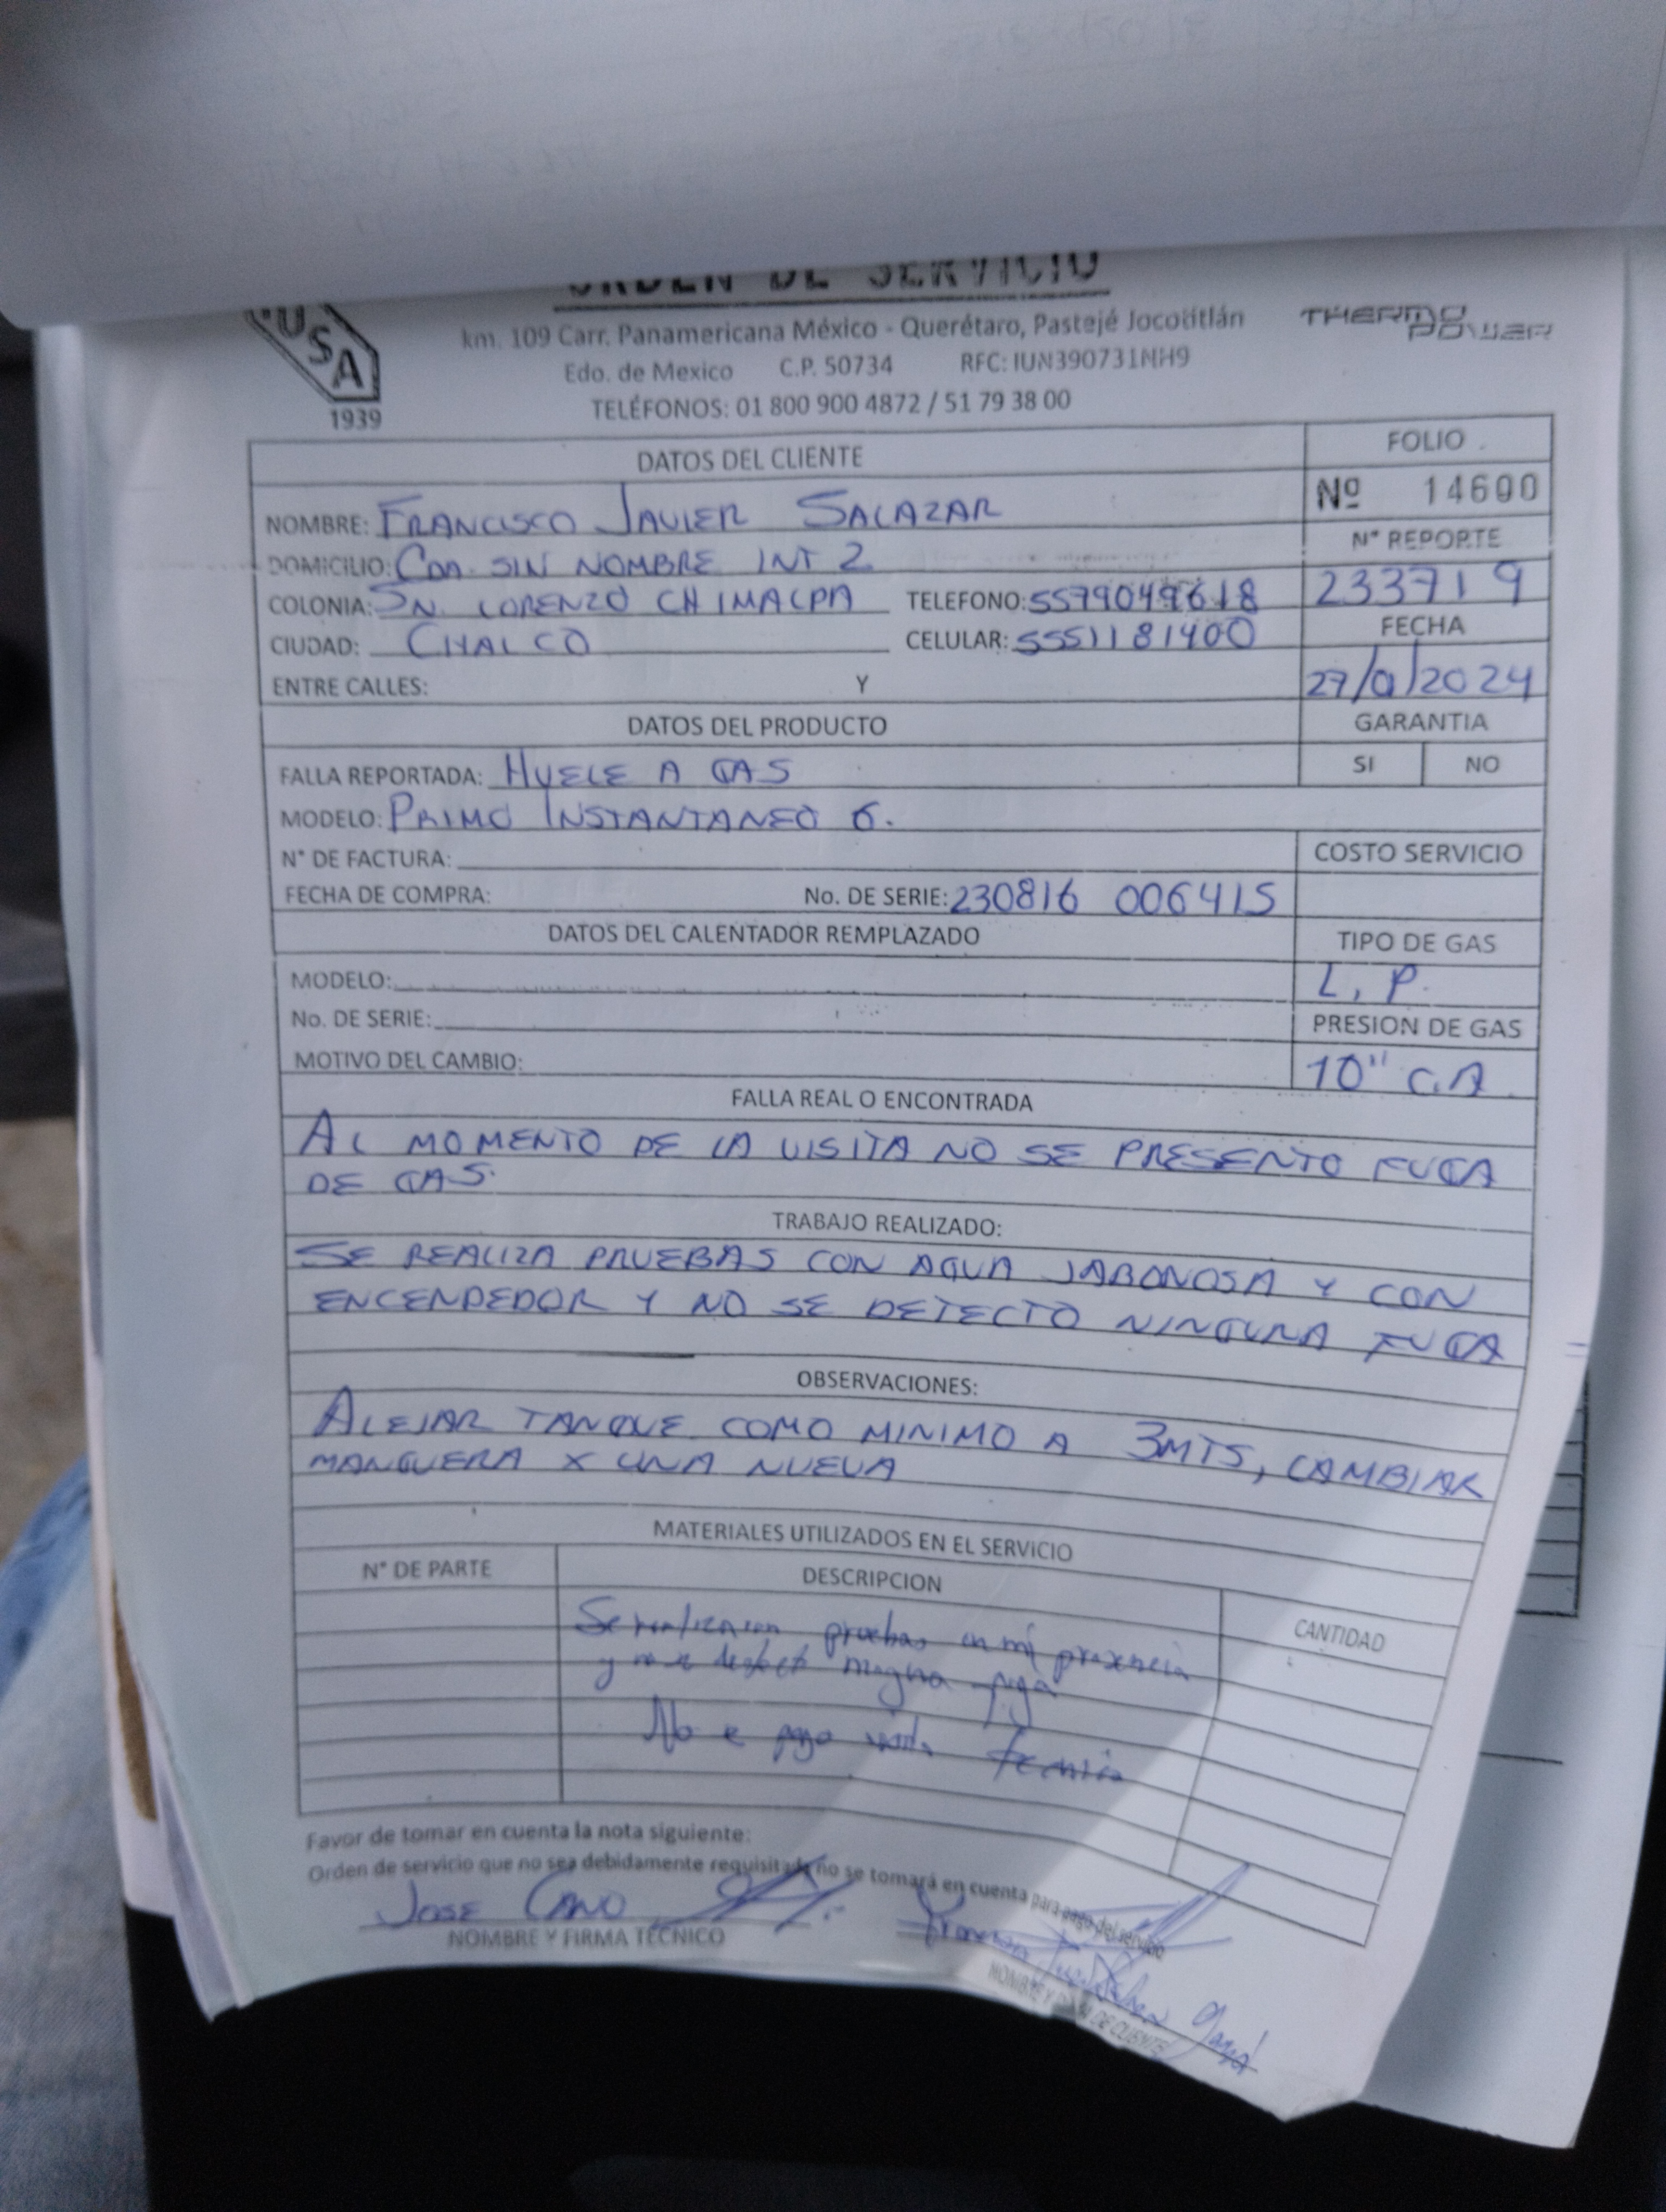 ORDEN DE SERVICIO
USA
1939
THERMO POWER
km. 109 Carr. Panamericana México - Querétaro, Pastejé Jocotitlán
Edo. de Mexico C.P. 50734 RFC: IUN390731NH9
TELÉFONOS: 01 800 900 4872 / 51 79 38 00
DATOS DEL CLIENTE
FOLIO
Nº 14600
NOMBRE: FRANCISCO JAVIER SALAZAR
N° REPORTE
DOMICILIO: CDA. SIN NOMBRE INT 2
233719
COLONIA: SN. LORENZO CHIMALPA TELEFONO: 5579049618
FECHA
CIUDAD: CHALCO CELULAR: 5551181400
27/0/2024
ENTRE CALLES: Y
DATOS DEL PRODUCTO
GARANTIA
SI NO
FALLA REPORTADA: HUELE A GAS
MODELO: PRIMO INSTANTANEO 6.
N° DE FACTURA:
COSTO SERVICIO
FECHA DE COMPRA: No. DE SERIE: 230816 006415
DATOS DEL CALENTADOR REMPLAZADO
TIPO DE GAS
MODELO:
L.P.
No. DE SERIE:
PRESION DE GAS
MOTIVO DEL CAMBIO:
10" C.A
FALLA REAL O ENCONTRADA
AL MOMENTO DE LA VISITA NO SE PRESENTO FUGA
DE GAS.
TRABAJO REALIZADO:
SE REALIZA PRUEBAS CON AGUA JABONOSA Y CON
ENCENDEDOR Y NO SE DETECTO NINGUNA FUGA
OBSERVACIONES:
ALEJAR TANQUE COMO MINIMO A 3MTS, CAMBIAR
MANGUERA X UNA NUEVA
MATERIALES UTILIZADOS EN EL SERVICIO
N° DE PARTE DESCRIPCION CANTIDAD
Se realizaron pruebas en mi presencia
y no se detectó ninguna fuga
No e pago visita tecnica
Favor de tomar en cuenta la nota siguiente:
Orden de servicio que no sea debidamente requisitada no se tomará en cuenta para pago del servicio
JOSE CANO
NOMBRE Y FIRMA TÉCNICO
NOMBRE Y FIRMA DE CLIENTE